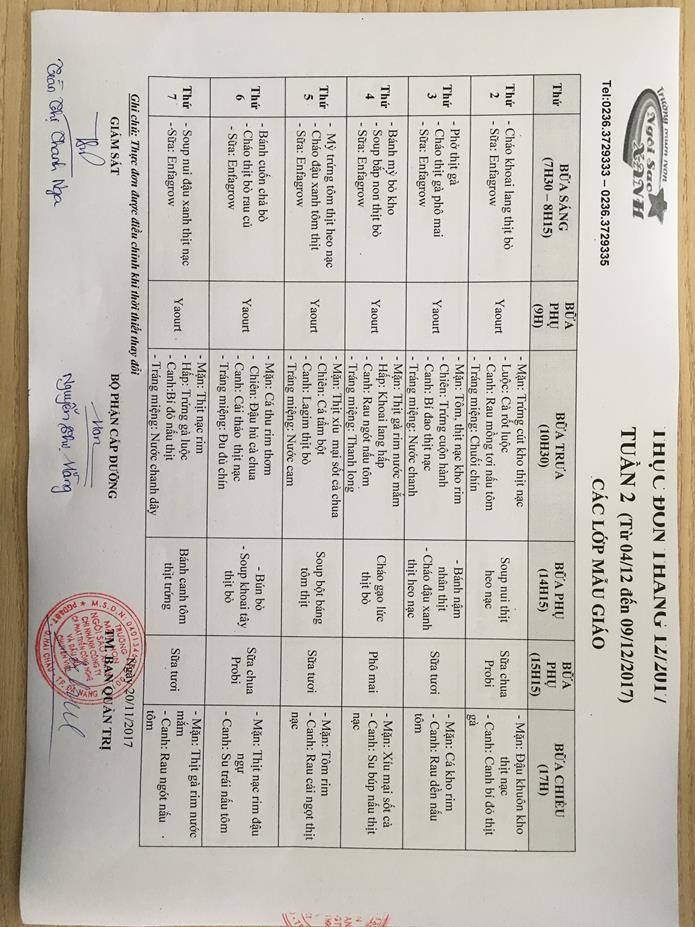 Trường mầm non
Ngôi Sao
XANH
Tel:0236.3729333 – 0236.3729335
THỰC ĐƠN THÁNG 12/2017
TUẦN 2 (Từ 04/12 đến 09/12/2017)
CÁC LỚP MẪU GIÁO
Thứ
BỮA SÁNG
(7H30 – 8H15)
BỮA
PHỤ
(9H)
BỮA TRƯA
(10H30)
BỮA PHỤ
(14H15)
BỮA
PHỤ
(15H15)
BỮA CHIỀU
(17H)
Thứ
2
- Cháo khoai lang thịt bò
- Sữa: Enfagrow
Yaourt
- Mặn: Trứng cút kho thịt nạc
- Luộc: Cà rốt luộc
- Canh: Rau mồng tơi nấu tôm
- Tráng miệng: Chuối chín
Soup nui thịt
heo nạc
Sữa chua
Probi
-Mặn: Đậu khuôn kho
thịt nạc
- Canh: Canh bí đỏ thịt
gà
Thứ
3
- Phở thịt gà
- Cháo thịt gà phô mai
- Sữa: Enfagrow
Yaourt
- Mặn: Tôm, thịt nạc kho rim
- Chiên: Trứng cuộn hành
- Canh: Bí đao thịt nạc
- Tráng miệng: Nước chanh
- Bánh nậm
nhân thịt
- Cháo đậu xanh
thịt heo nạc
Sữa tươi
- Mặn: Cá kho rim
- Canh: Rau dền nấu
tôm
Thứ
4
- Bánh mỳ bò kho
- Soup bắp non thịt bò
- Sữa: Enfagrow
Yaourt
- Mặn: Thịt gà rim nước mắm
- Hấp: Khoai lang hấp
- Canh: Rau ngót nấu tôm
- Tráng miệng: Thanh long
Cháo gạo lức
thịt bò
Phô mai
- Mặn: Xíu mại sốt cà
- Canh: Su búp nấu thịt
nạc
Thứ
5
- Mỳ trứng tôm thịt heo nạc
- Cháo đậu xanh tôm thịt
- Sữa: Enfagrow
Yaourt
- Mặn: Thịt xíu mại sốt cà chua
- Chiên: Cá tẩm bột
- Canh: Lagim thịt bò
- Tráng miệng: Nước cam
Soup bột báng
tôm thịt
Sữa tươi
- Mặn: Tôm rim
- Canh: Rau cải ngọt thịt
nạc
Thứ
6
- Bánh cuốn chả bò
- Cháo thịt bò rau củ
- Sữa: Enfagrow
Yaourt
- Mặn: Cá thu rim thơm
- Chiên: Đậu hủ cà chua
- Canh: Cải thảo thịt nạc
- Tráng miệng: Đu đủ chín
- Bún bò
- Soup khoai tây
thịt bò
Sữa chua
Probi
- Mặn: Thịt nạc rim đậu
ngự
- Canh: Su trái nấu tôm
Thứ
7
- Soup nui đậu xanh thịt nạc
-Sữa: Enfagrow
Yaourt
- Mặn: Thịt nạc rim
- Hấp: Trứng gà luộc
- Canh:Bí đỏ nấu thịt
- Tráng miệng: Nước chanh dây
Bánh canh tôm
thịt trứng
Sữa tươi
- Mặn: Thịt gà rim nước
mắm
- Canh: Rau ngót nấu
tôm
Ghi chú: Thực đơn được điều chỉnh khi thời thiết thay đổi
Ngày 20/11/2017
GIÁM SÁT
BỘ PHẬN CẤP DƯỠNG
TM. BAN QUẢN TRỊ
Trần Thị Thanh Nga
TRƯỜNG
MẦM NON
NGÔI SAO
CHI NHÁNH CÔNG TY